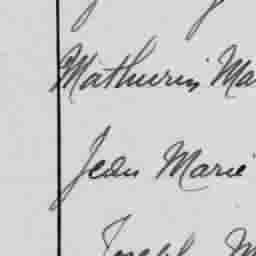 Mathurin Ma
Jean Marie
Joseph M